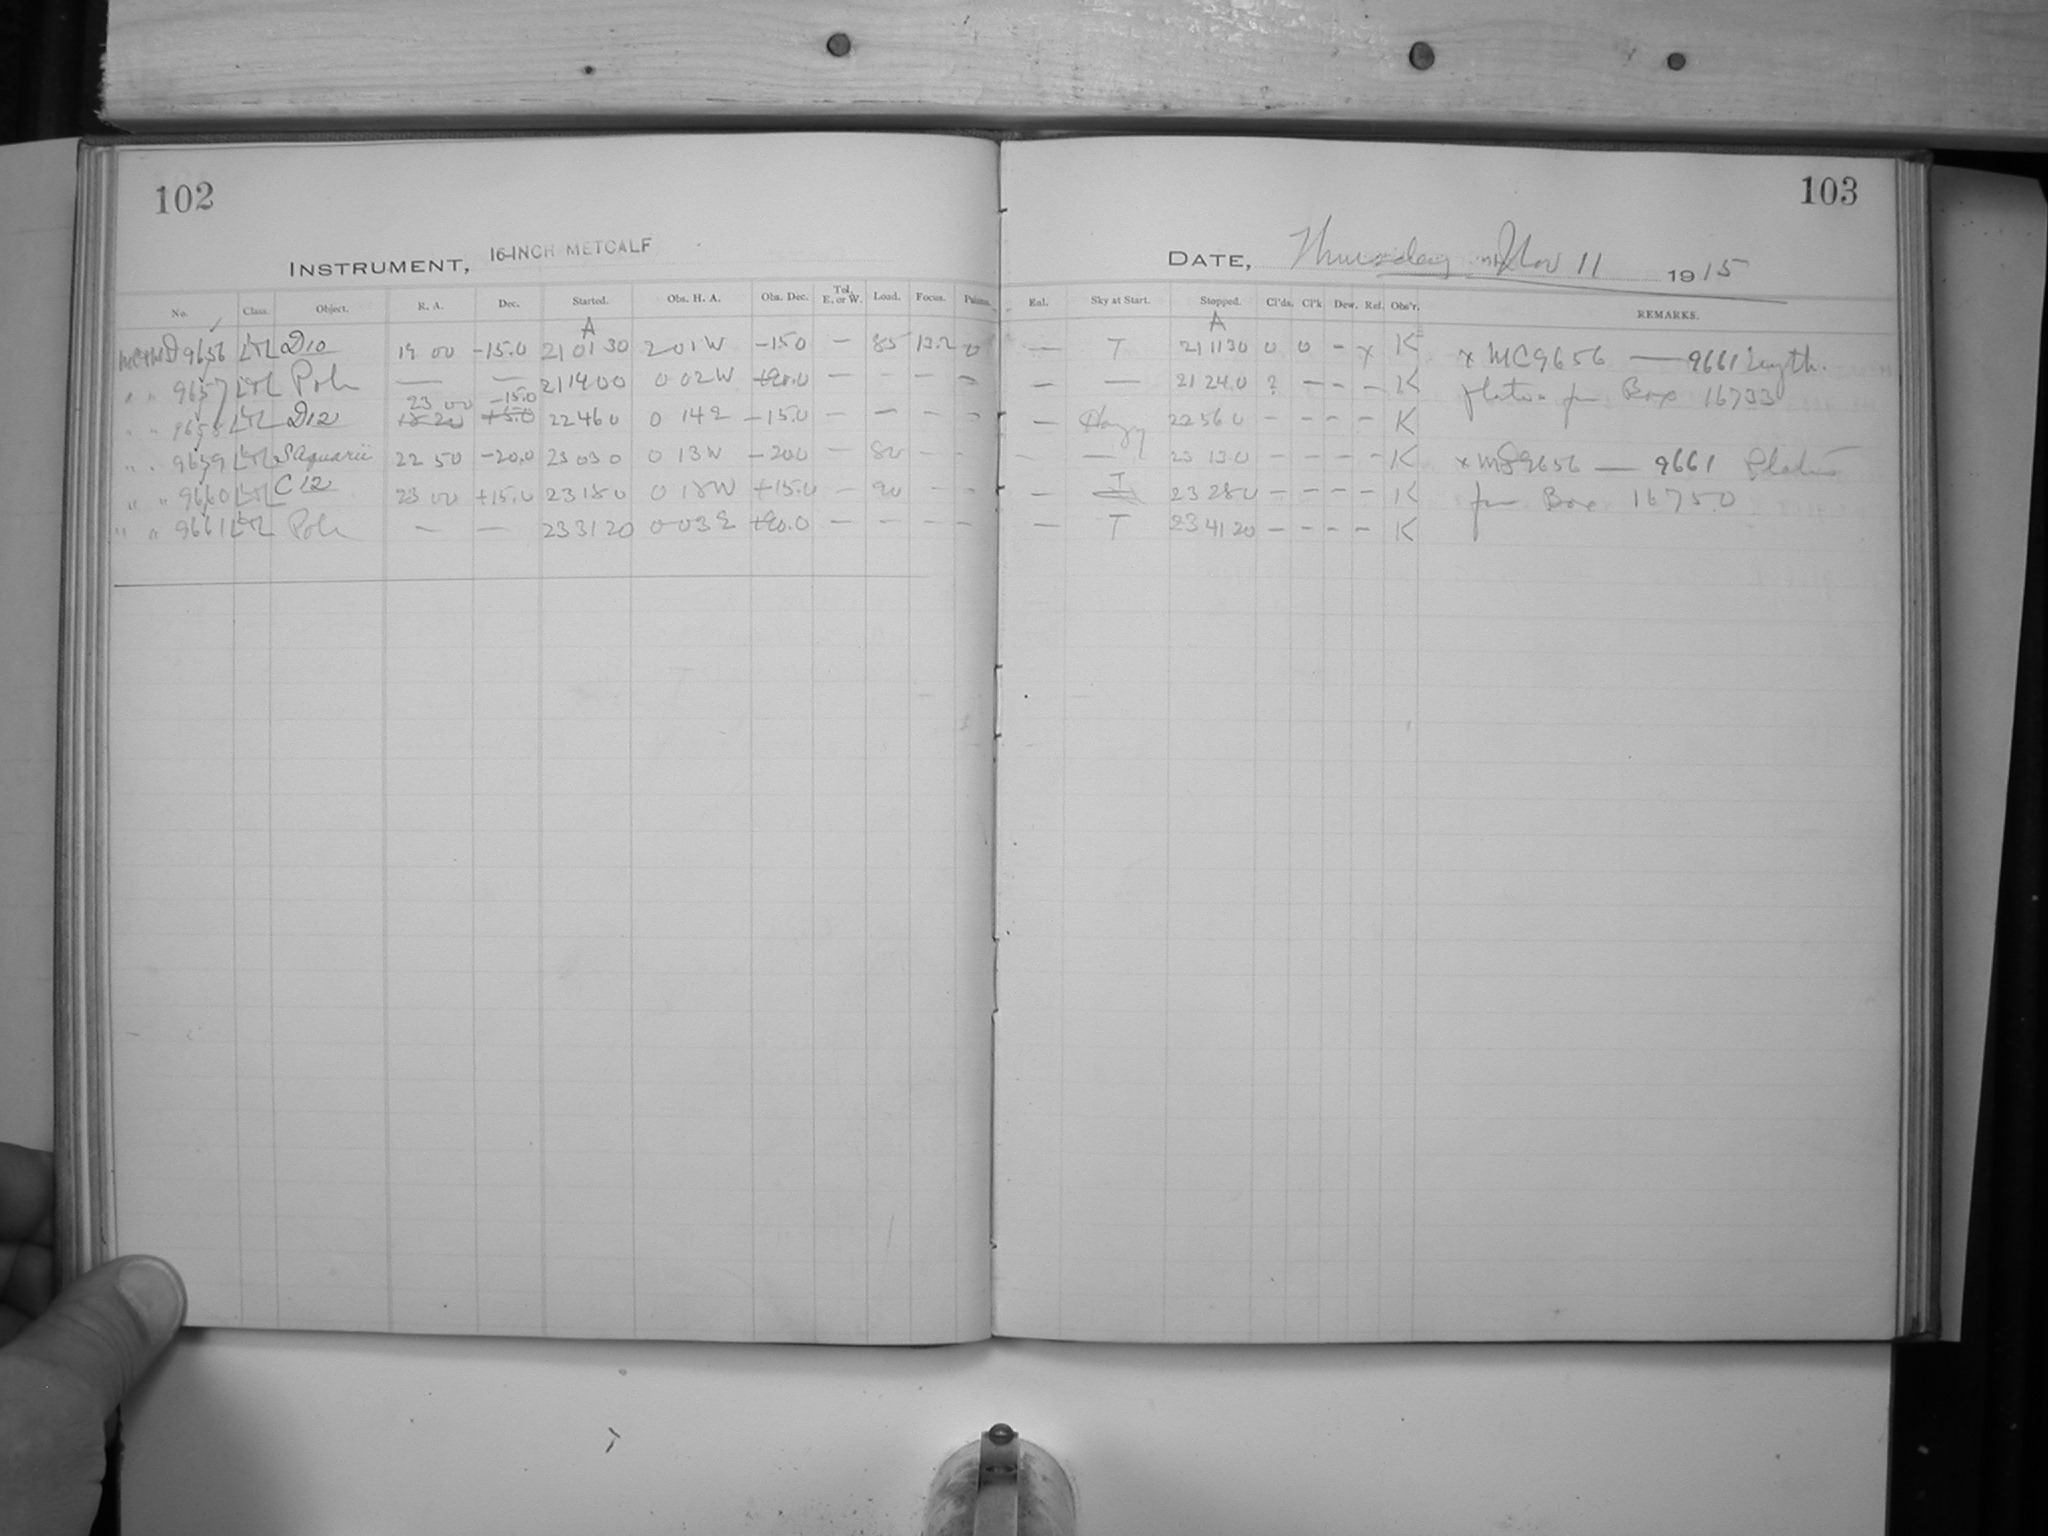 102
103
INSTRUMENT, 16-INCH METCALF
DATE, Thursday Nov 11 1915
No. Class. Object. R. A. Dec. Started. Obs. H. A. Obs. Dec. Tel. E. or W. Load. Focus. Enl. Sky at Start. Stopped. Cl'ds. Cl'k Dew. Ref. Obs'r. REMARKS.
A A
9656 D10 19 00 -15.0 21 01 30 2 01 W -15.0 - 85 13.2 0 - T 21 11 30 0 0 - x K x MC 9656 — 9661
" " 9657 Pole — — 21 14 00 0 02 W +90.0 - - - - - — 21 24 0 ? - - - K plates from Box 16733
23 00 -15.0
" " 9658 D12 22 46 0 0 14 E -15.0 - - - - - Hazy 22 56 0 - - - - K
" " 9659 S Aquarii 22 50 -20.0 23 03 0 0 13 W -20.0 - 80 - - - — 23 13 0 - - - - K x MS 9656 — 9661 Plates
" " 9660 C12 23 00 +15.0 23 18 0 0 18 W +15.0 - 90 - - - T 23 28 0 - - - - K from Box 16750
" " 9661 Pole — — 23 31 20 0 03 E +90.0 - - - - - T 23 41 20 - - - - K